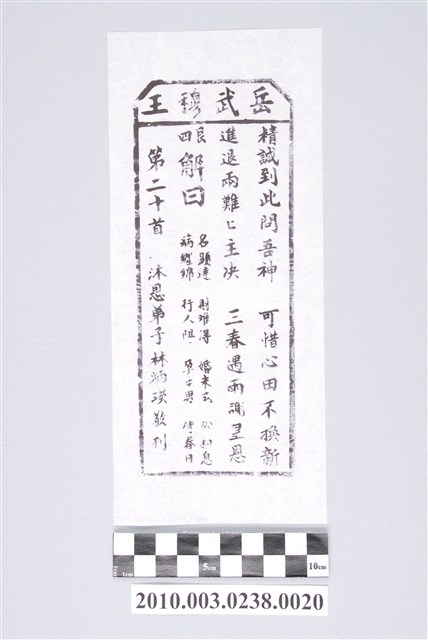 岳武穆王
精誠到此問吾神 可惜心田不換新
進退兩難上主決 三春遇雨識皇恩
艮四 解曰
名顯達 財難得 婚未去 訟知息
病纏綿 行人阻 孕生男 待春日
第二十首 沐恩弟子林炳瑛敬刊
1cm
5cm
10cm
2010.003.0238.0020